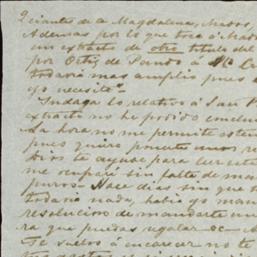 de a Magdalena, Mados,
Ademas por lo que toca á Mado
un extracto de otro titulo del
por Ortiz de Pando á
todavia mas amplio pues
yo necesito.
Indaga lo relativo á San P
extracto no he podido conclu
La hora no me permite esten
pues quiero ponerte unos re
Dios te ayude para
me ocuparé sin falta de man
Hace dias sin que
todavia nada, habia yo man
resolucion de mandarte un
ra que puedas regalar
Te suelvo á encarecer no te